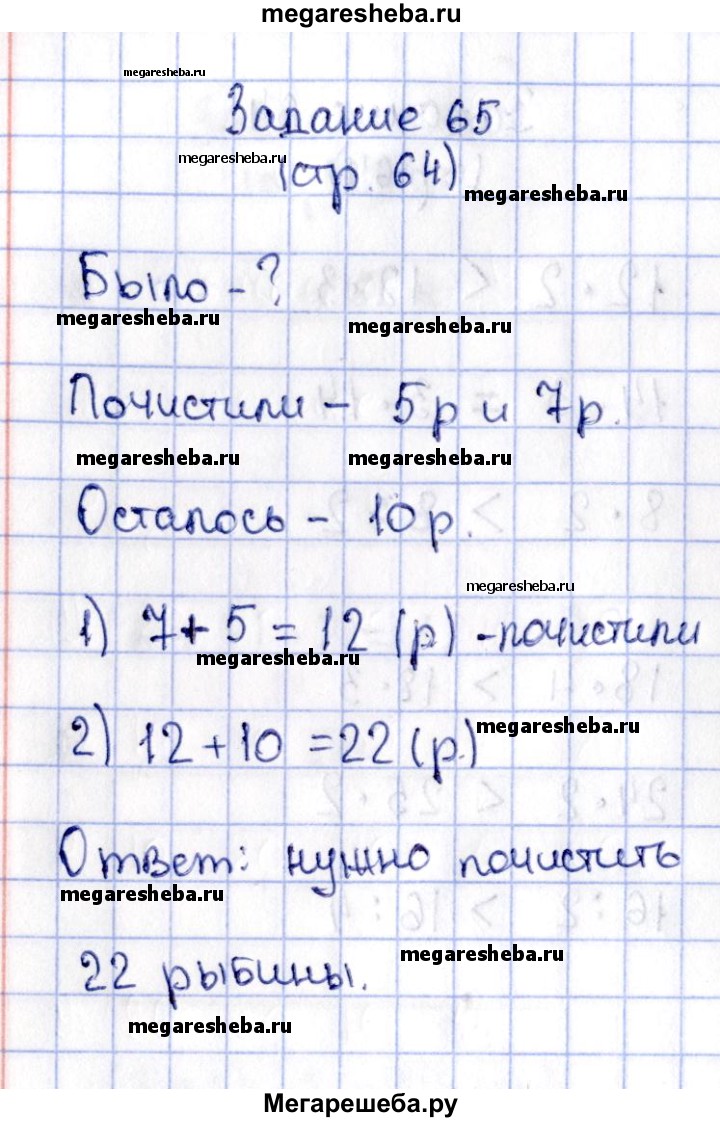 megaresheba.ru
megaresheba.ru
Задание 65
megaresheba.ru
(стр. 64)
megaresheba.ru
Было - ?
megaresheba.ru
megaresheba.ru
Почистили - 5р и 7р.
megaresheba.ru
megaresheba.ru
Осталось - 10р.
megaresheba.ru
1) 7 + 5 = 12 (р) - почистили
megaresheba.ru
2) 12 + 10 = 22 (р.)
megaresheba.ru
Ответ: нужно почистить
megaresheba.ru
22 рыбины.
megaresheba.ru
megaresheba.ru
Мегарешеба.ру